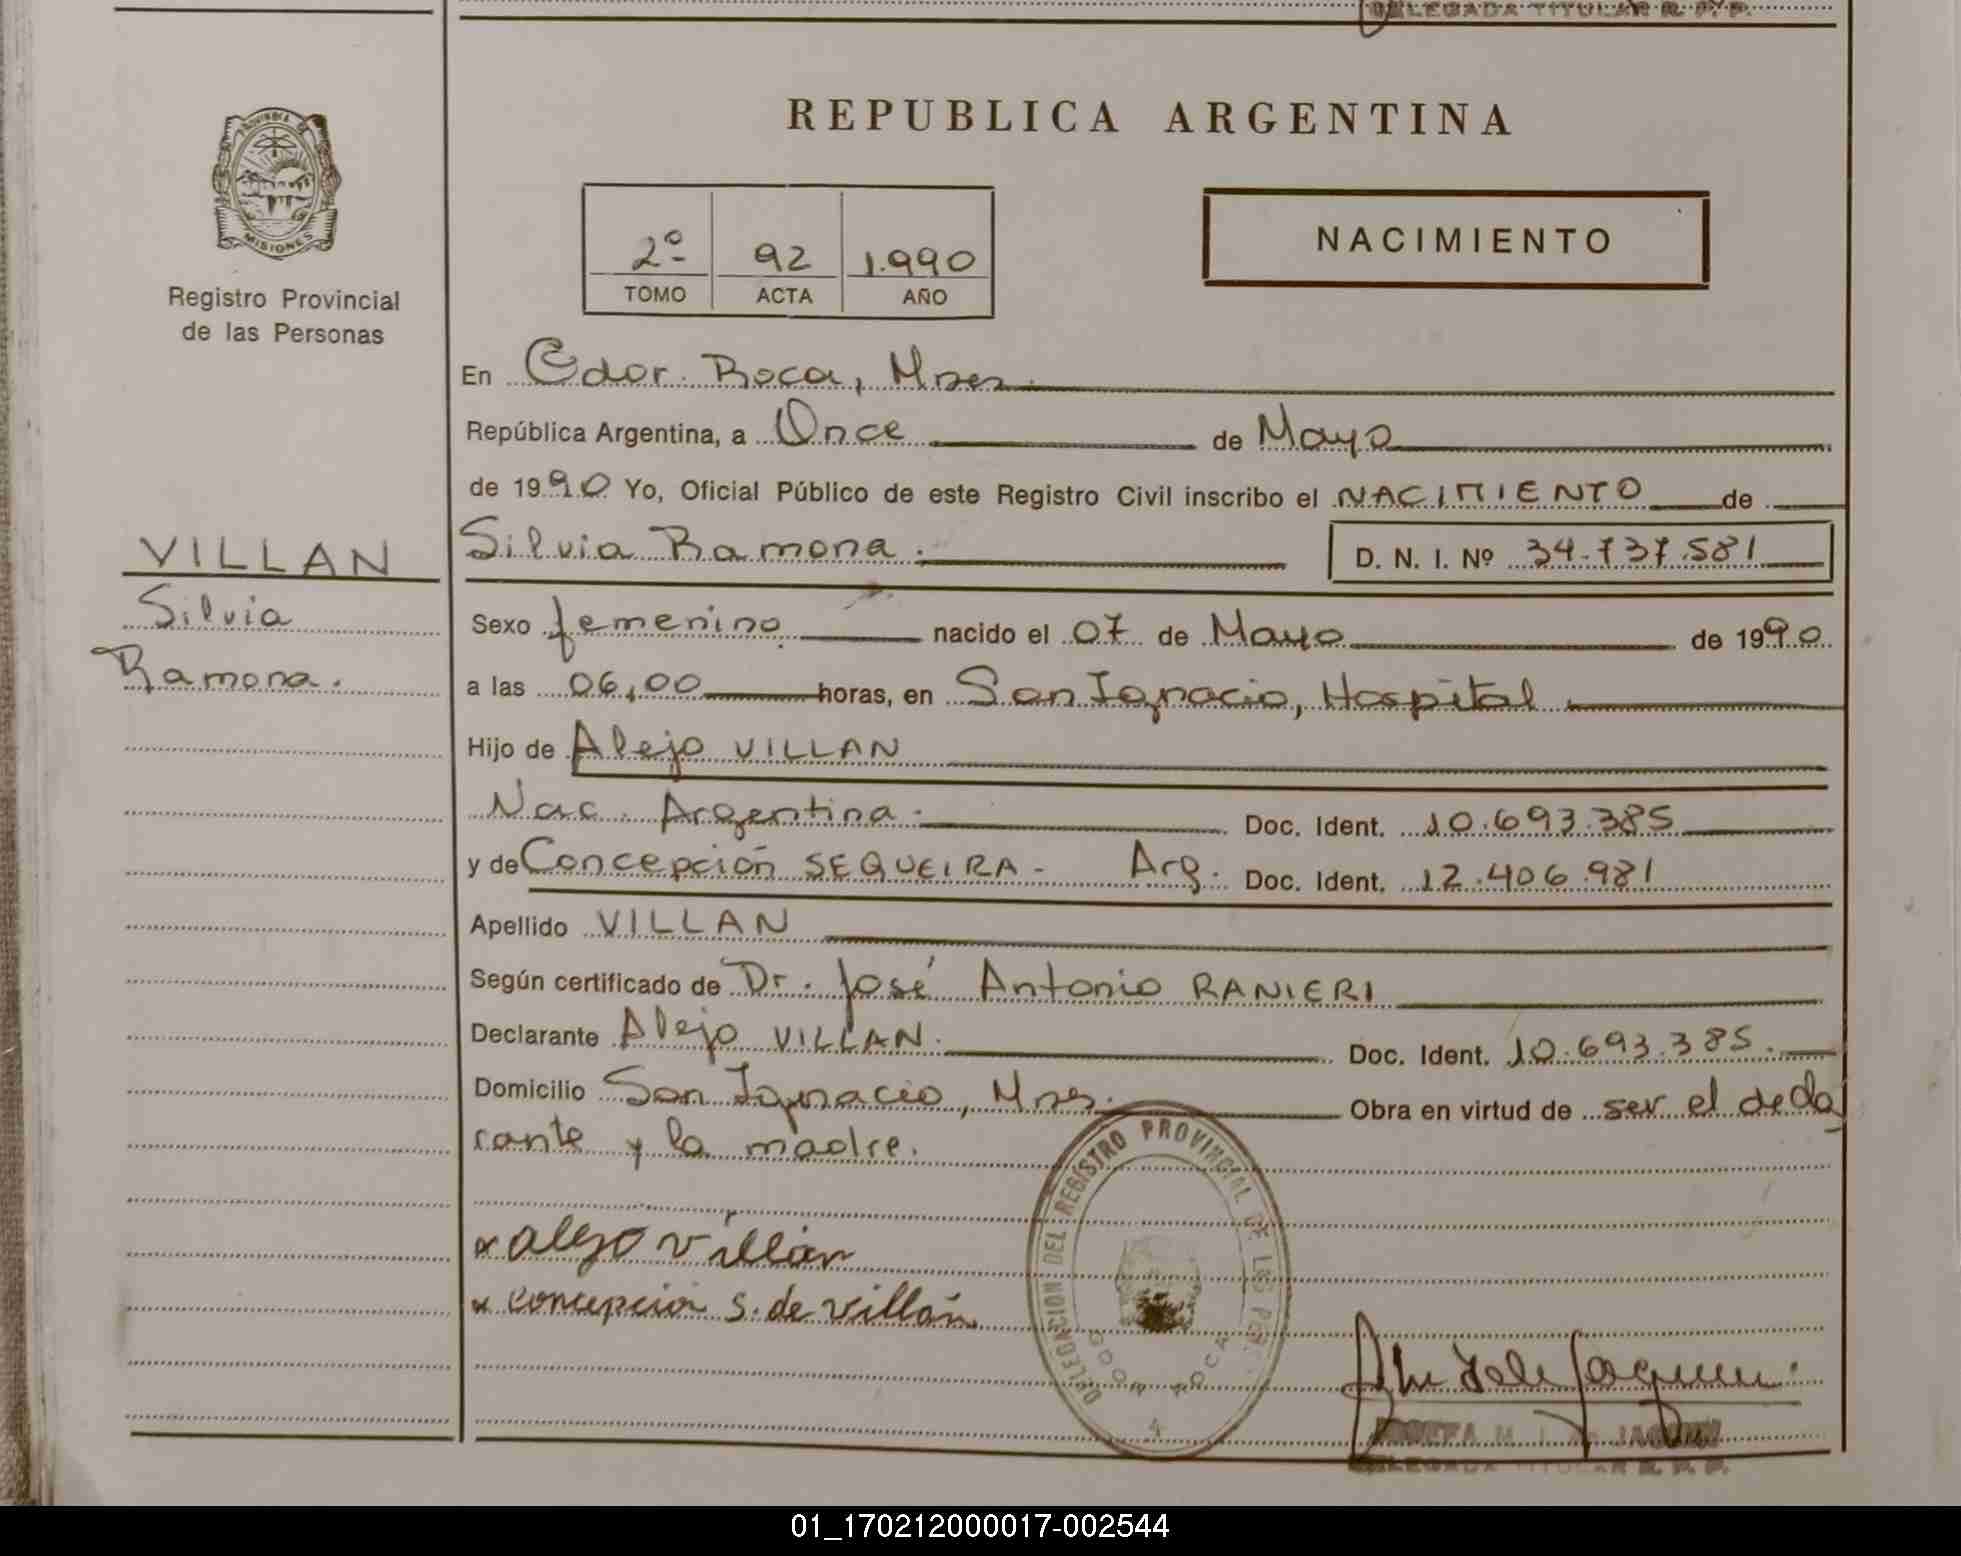 DELEGADA TITULAR R. P. P.
PROVINCIA DE
MISIONES
Registro Provincial
de las Personas
VILLAN
Silvia
Ramona.
REPUBLICA ARGENTINA
2º 92 1.990
TOMO ACTA AÑO
NACIMIENTO
En Gdor. Roca, Mnes.
República Argentina, a Once de Mayo
de 1990 Yo, Oficial Público de este Registro Civil inscribo el NACIMIENTO de
Silvia Ramona. D. N. I. Nº 34.737.581
Sexo femenino. nacido el 07 de Mayo de 1990.
a las 06,00 horas, en San Ignacio, Hospital
Hijo de Alejo VILLAN
Nac. Argentina. Doc. Ident. 10.693.385
y de Concepción SEQUEIRA - Arg. Doc. Ident. 12.406.981
Apellido VILLAN
Según certificado de Dr. José Antonio RANIERI
Declarante Alejo VILLAN. Doc. Ident. 10.693.385.
Domicilio San Ignacio, Mnes. Obra en virtud de ser el decla
rante y la madre.
x alejo villán
x concepción s. de villán
DELEGACION DEL REGISTRO PROVINCIAL DE LAS PER.
GDOR ROCA
4
DELEGADA TITULAR R. P. P.
01_170212000017-002544